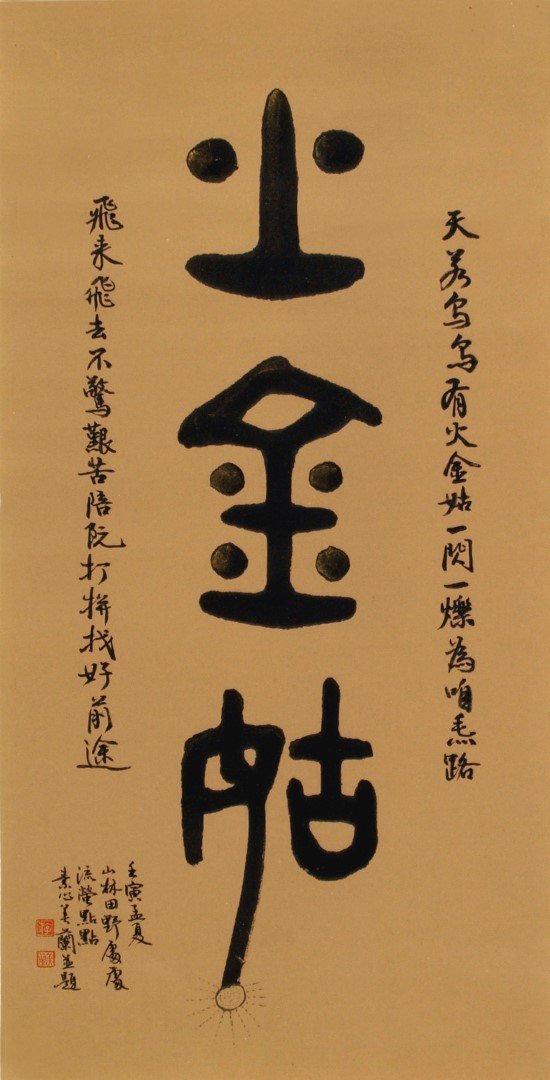 火金姑
天若烏烏有火金姑一閃一爍為咱𤆬路
飛来飛去不驚艱苦陪阮打拼找好前途
壬寅孟夏
山林田野處處
流螢點點
素心美蘭並題